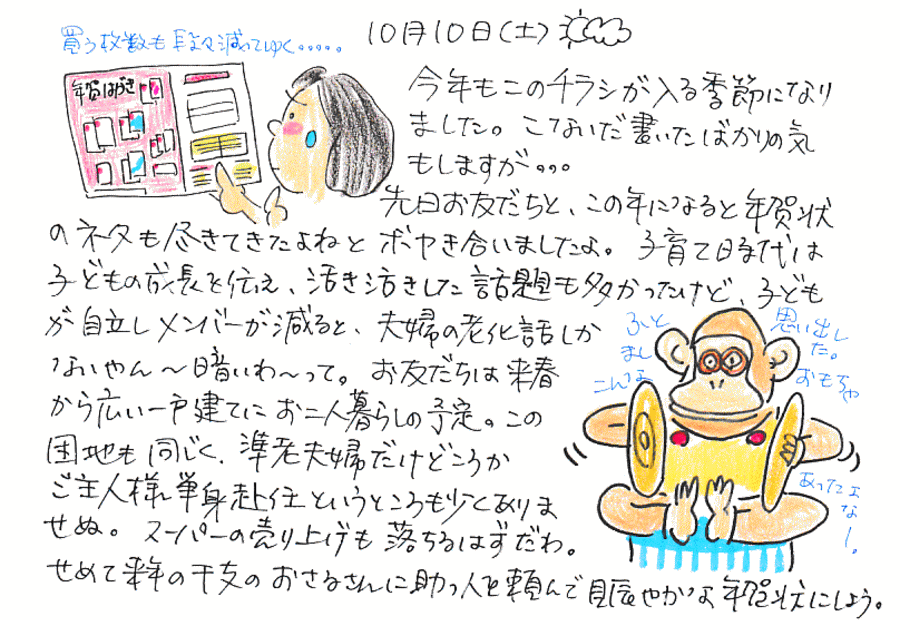 10月10日(土)
買う枚数も段々減ってゆく・・・・・
年賀はがき
今年もこのチラシが入る季節になり
ました。こないだ書いたばかりの気
もしますが。。。
先日お友だちと、この年になると年賀状
のネタも尽きてきたよねとボヤき合いましたよ。子育て時代は
子どもの成長を伝え、活き活きした話題も多かったけど、子ども
が自立しメンバーが減ると、夫婦の老化話しか
ないやん〜暗いわ〜って。お友だちは来春
から広い一戸建てにお二人暮らしの予定。この
団地も同じく、準老夫婦だけどころか
ご主人様単身赴任というところも少くありま
せぬ。スーパーの売り上げも落ちるはずだわ。
せめて来年の干支のおさるさんに助っ人を頼んで賑やかな年賀状にしよう。
ふと
思い出し
た。
こんな
おもちゃ
あったよ
なー。